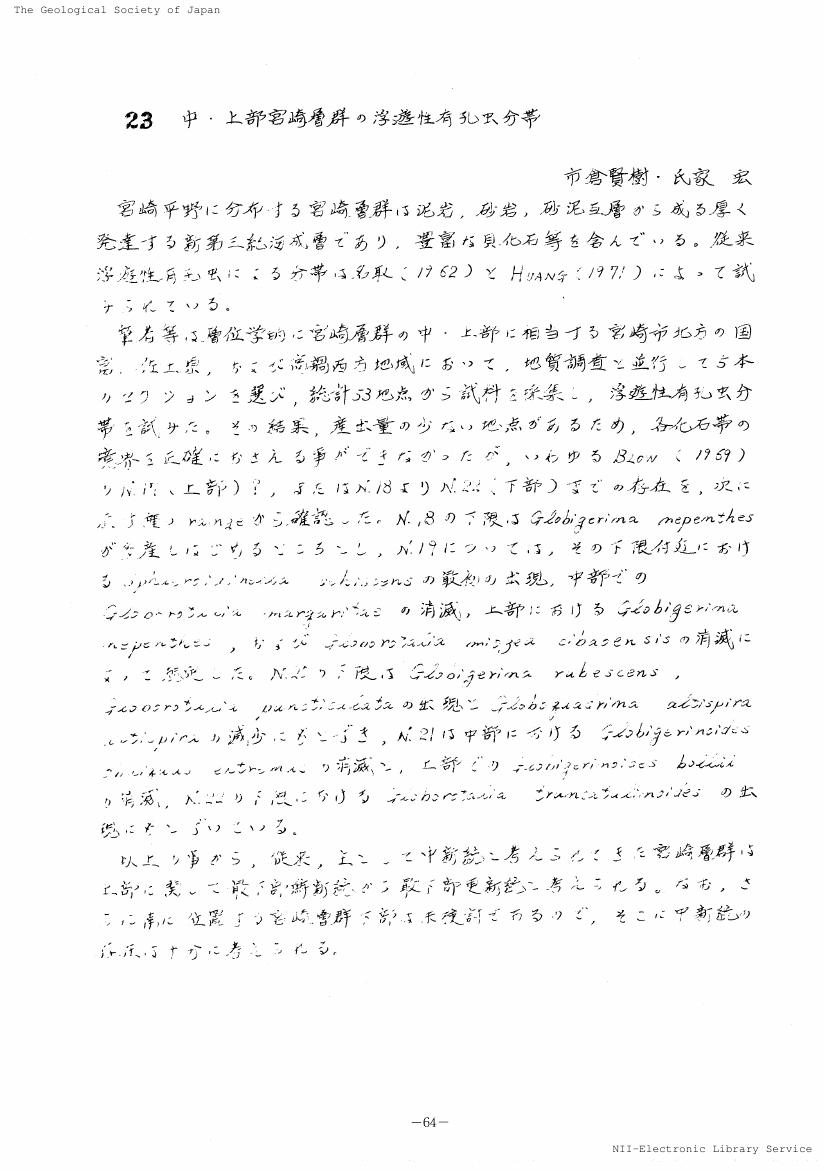 The Geological Society of Japan
23 中・上部宮崎層群の浮遊性有孔虫分帯
市倉賢樹・氏家 宏
宮崎平野に分布する宮崎層群は泥岩，砂岩，砂泥互層から成る厚く
発達する新第三紀海成層であり，豊富な貝化石等を含んでいる。従来
浮遊性有孔虫による分帯は名取（1962）とHUANG（1971）によって試
みられている。
筆者等は層位学的に宮崎層群の中・上部に相当する宮崎市北方の国
富，佐土原，および高鍋西方地域において，地質調査と並行して5本
のセクションを選び，総計53地点から試料を採集し，浮遊性有孔虫分
帯を試みた。その結果，産出量の少ない地点があるため，各化石帯の
境界を正確におさえる事ができなかったが，いわゆるBLOW（1969）
のN.17（上部）？，またはN.18よりN.22（下部）までの存在を，次に
示す種のrangeから確認した。N.18の下限はGlobigerina nepenthes
が多産しはじめるところとし，N.19については，その下限付近におけ
る の最初の出現，中部での
Globorotalia margaritae の消滅，上部における Globigerina
nepenthes ，および Globorotalia cibaoensisの消滅に
よって した。 の下限は Globigerina rubescens ，
Globorotalia puncticulataの出現と Globoquadrina altispira
altispira の減少にもとづき，N.21は中部における Globigerinoides
extremus の消滅と，上部での Globigerinoides bollii
の消滅，N.22の下限における Globorotalia truncatulinoides の出
現にもとづいている。
以上の事から，従来，主として中新統と考えられてきた宮崎層群は
上部に関して最下部鮮新統から最下部更新統と考えられる。なお，さ
らに南に位置する宮崎層群下部は未検討であるので，そこに中新統の
存在は十分に考えられる。
－64－
NII-Electronic Library Service